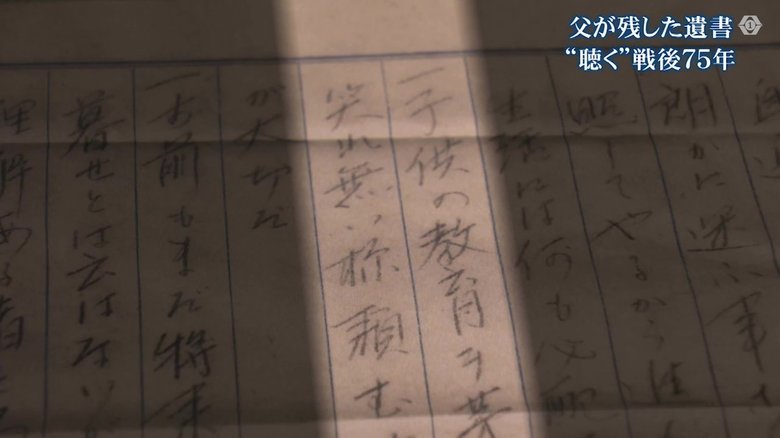 父が残した遺書
“聴く”戦後75年
朗かに迷ふ事
照してやるから
生活には何も心配
一子供の教育ヲ
笑れ無い称頼む
が大切だ
一お前もまだ将来
暮せとは云はないが
理解ある者